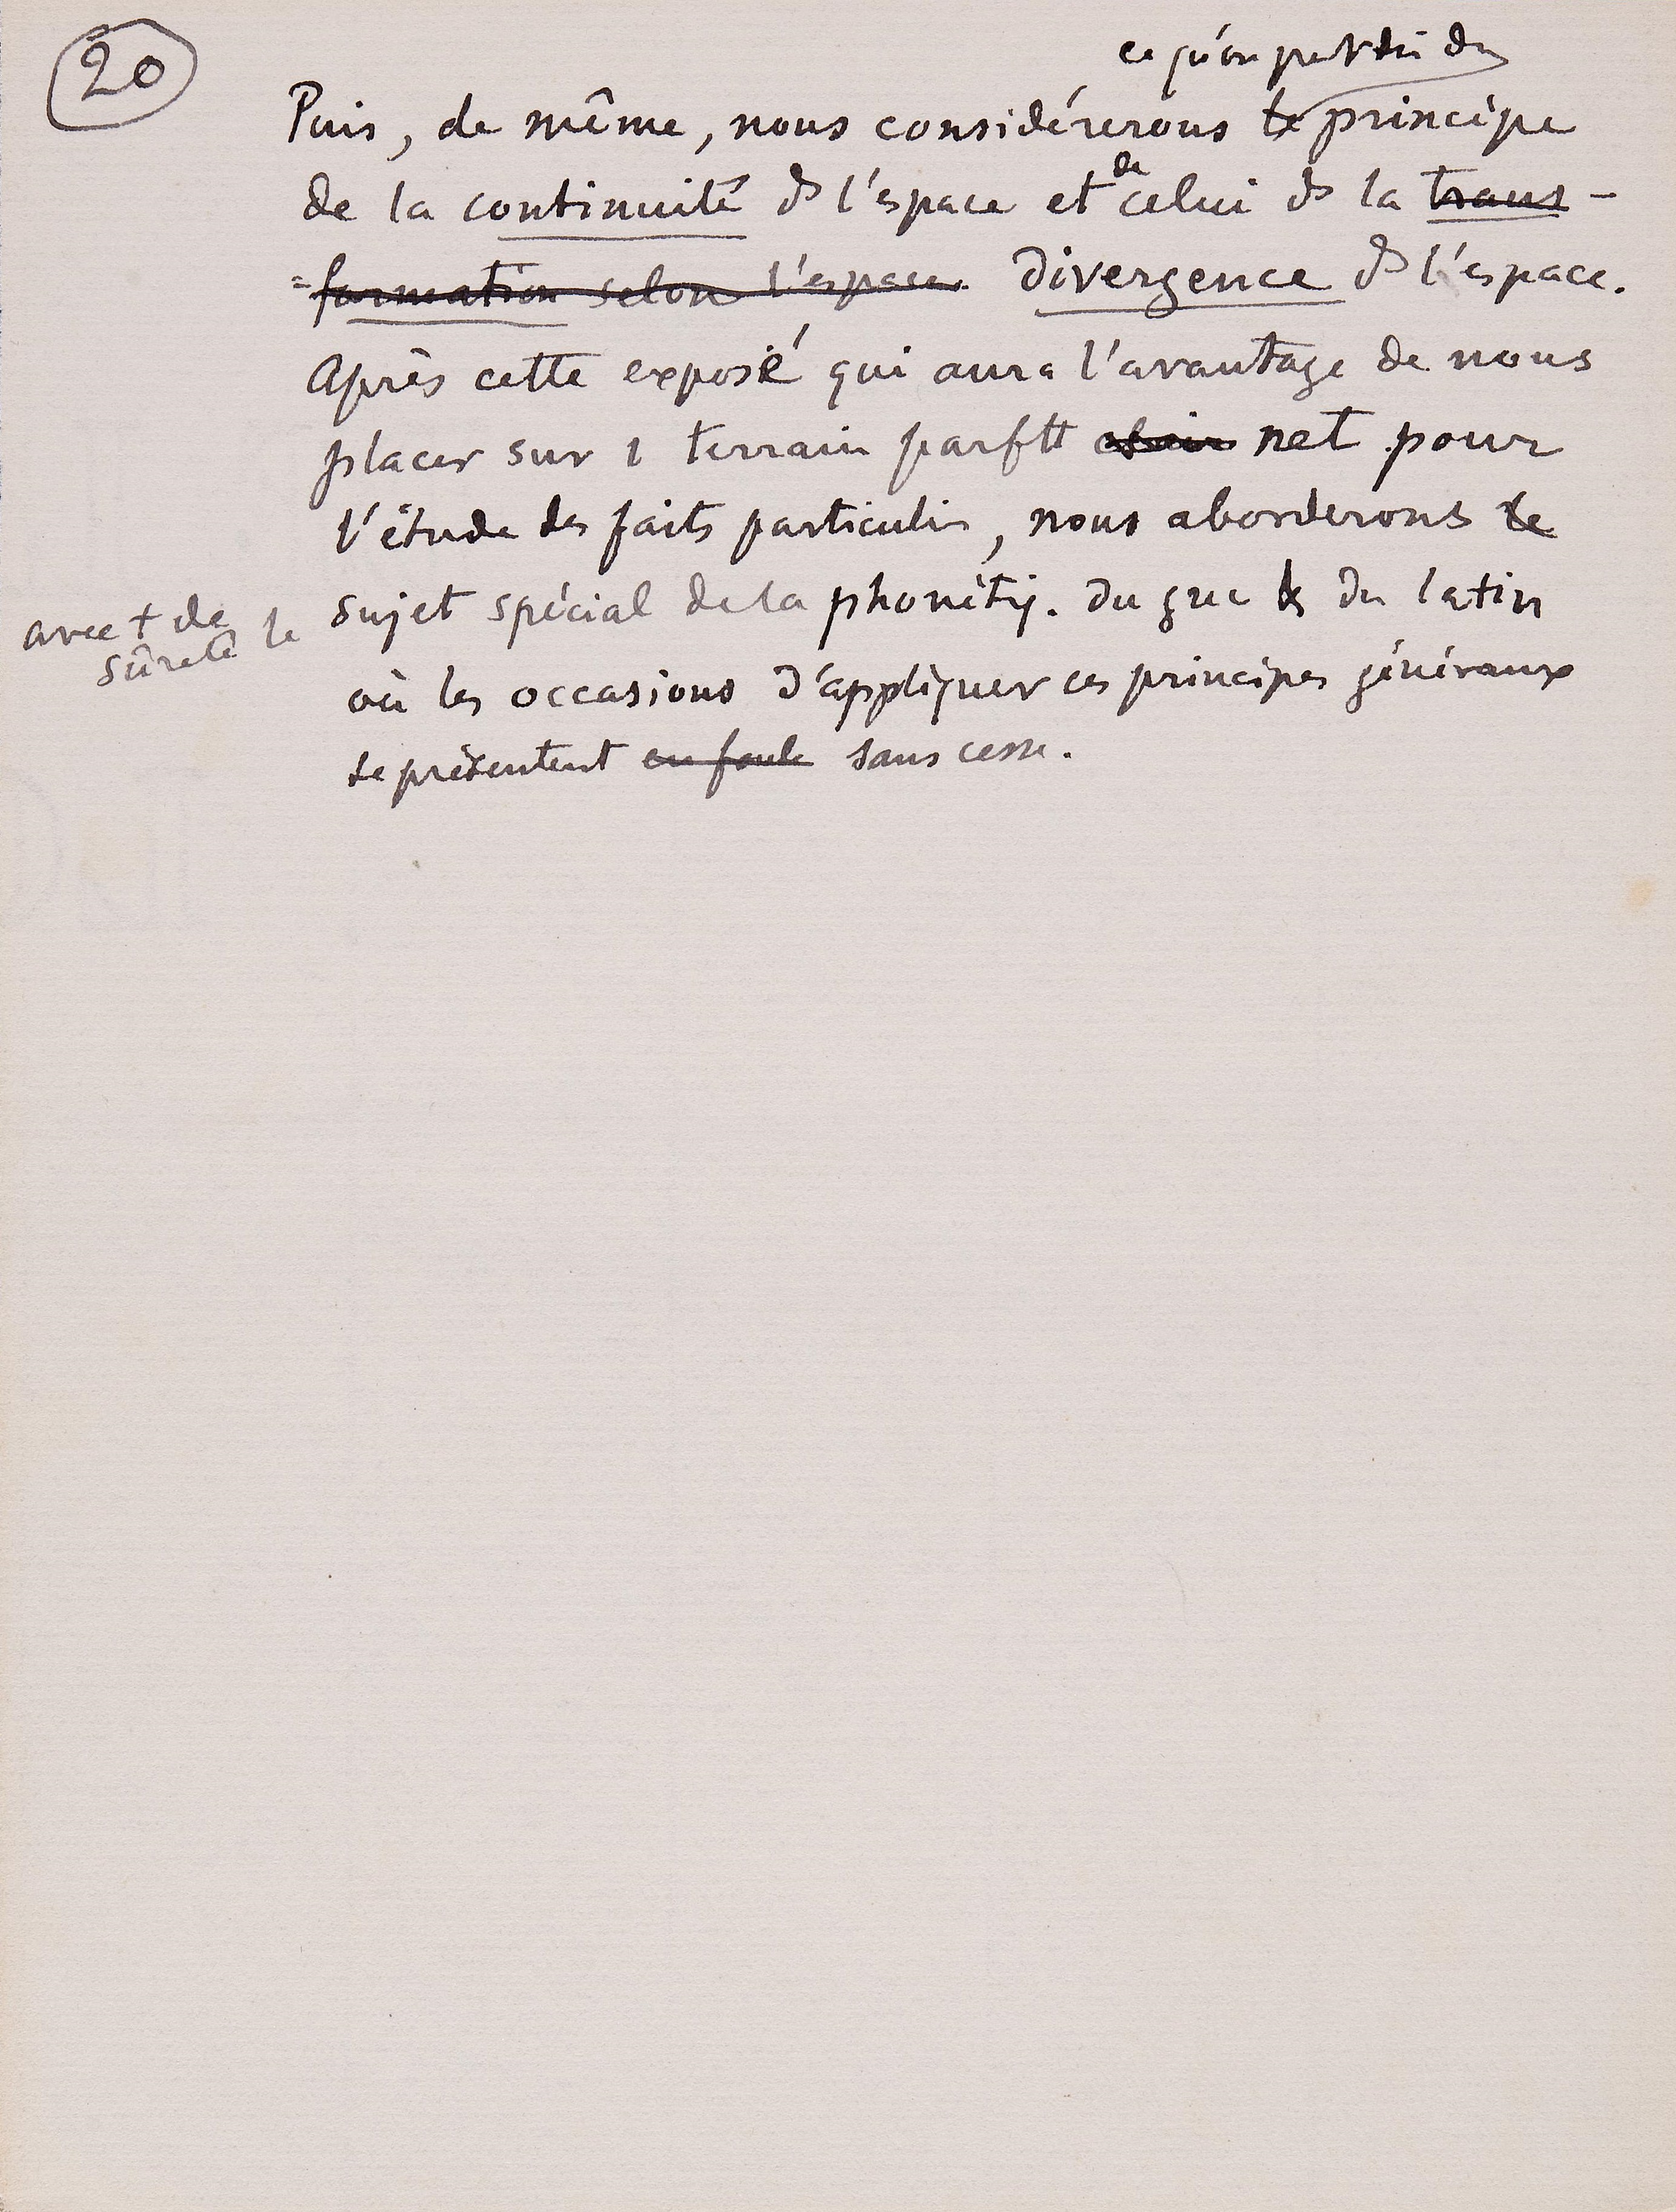 20
ce qu'on peut dire du
Puis, de même, nous considérerons le principe
de la continuité ds l'espace et de celui ds la trans-
=formation selon l'espace. divergence ds l'espace.
Après cette exposé qui aura l'avantage de nous
placer sur 1 terrain parftt clair net pour
l'étude des faits particuliers, nous aborderons le
avec + de sûreté le
sujet spécial de la phonétiq. du grec & du latin
où les occasions d'appliquer ces principes généraux
se présentent en foule sans cesse.